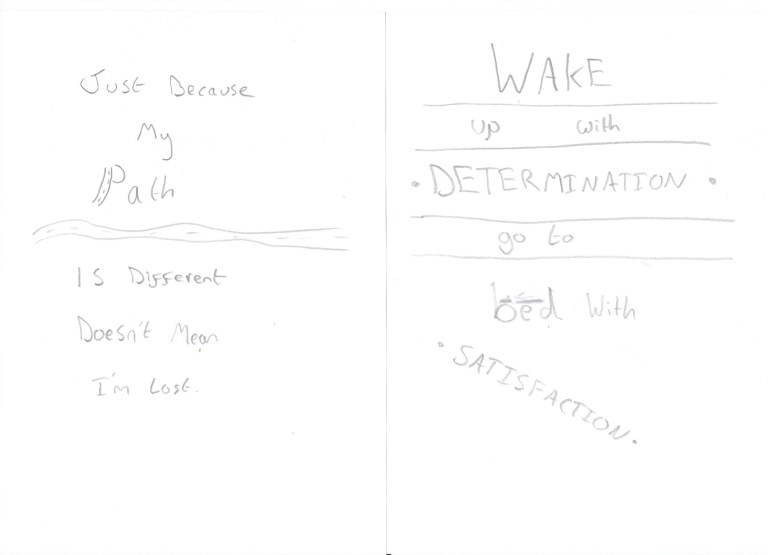 Just Because
My
Path
Is Different
Doesn't Mean
I'm Lost.
WAKE
up with
• DETERMINATION •
go to
bed With
• SATISFACTION •